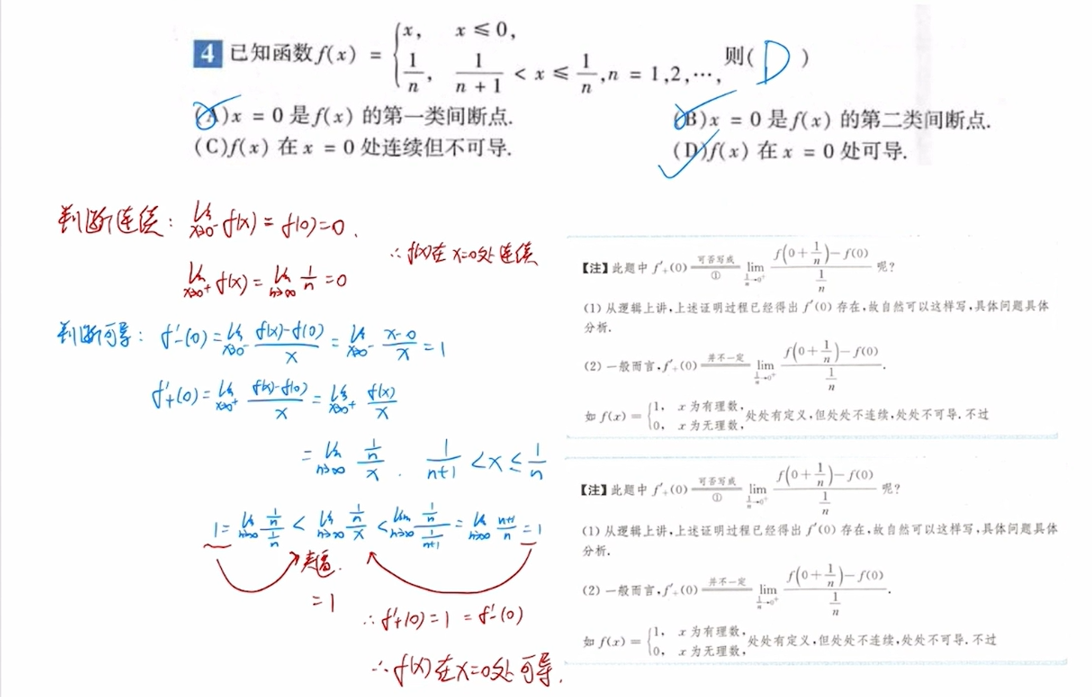 4 已知函数 f(x) = { x, x ≤ 0, 1/n, 1/(n+1) < x ≤ 1/n, n = 1,2,⋯, 则( D )
(A) x = 0 是 f(x) 的第一类间断点. (B) x = 0 是 f(x) 的第二类间断点.
(C) f(x) 在 x = 0 处连续但不可导. (D) f(x) 在 x = 0 处可导.
判断连续: lim x→0⁻ f(x) = f(0) = 0.
lim x→0⁺ f(x) = lim n→∞ 1/n = 0
∴ f(x)在 x=0处连续
判断可导: f'₋(0) = lim x→0⁻ (f(x)-f(0))/x = lim x→0⁻ (x-0)/x = 1
f'₊(0) = lim x→0⁺ (f(x)-f(0))/x = lim x→0⁺ f(x)/x
= lim n→∞ (1/n)/x . 1/(n+1) < x ≤ 1/n
1 = lim n→∞ (1/n)/(1/n) < lim n→∞ (1/n)/x < lim n→∞ (1/n)/(1/(n+1)) = lim n→∞ (n+1)/n = 1
= 1
∴ f'₊(0) = 1 = f'₋(0)
∴ f(x)在x=0处可导.
【注】此题中 f'₊(0) 可否写成 ═ ① lim 1/n→0⁺ (f(0+1/n)-f(0))/(1/n) 呢?
(1) 从逻辑上讲,上述证明过程已经得出 f'(0) 存在,故自然可以这样写,具体问题具体
分析.
(2) 一般而言, f'₊(0) 并不一定 ═ lim 1/n→0⁺ (f(0+1/n)-f(0))/(1/n).
如 f(x) = { 1, x 为有理数, 0, x 为无理数, 处处有定义,但处处不连续,处处不可导.不过
【注】此题中 f'₊(0) 可否写成 ═ ① lim 1/n→0⁺ (f(0+1/n)-f(0))/(1/n) 呢?
(1) 从逻辑上讲,上述证明过程已经得出 f'(0) 存在,故自然可以这样写,具体问题具体
分析.
(2) 一般而言, f'₊(0) 并不一定 ═ lim 1/n→0⁺ (f(0+1/n)-f(0))/(1/n).
如 f(x) = { 1, x 为有理数, 0, x 为无理数, 处处有定义,但处处不连续,处处不可导.不过